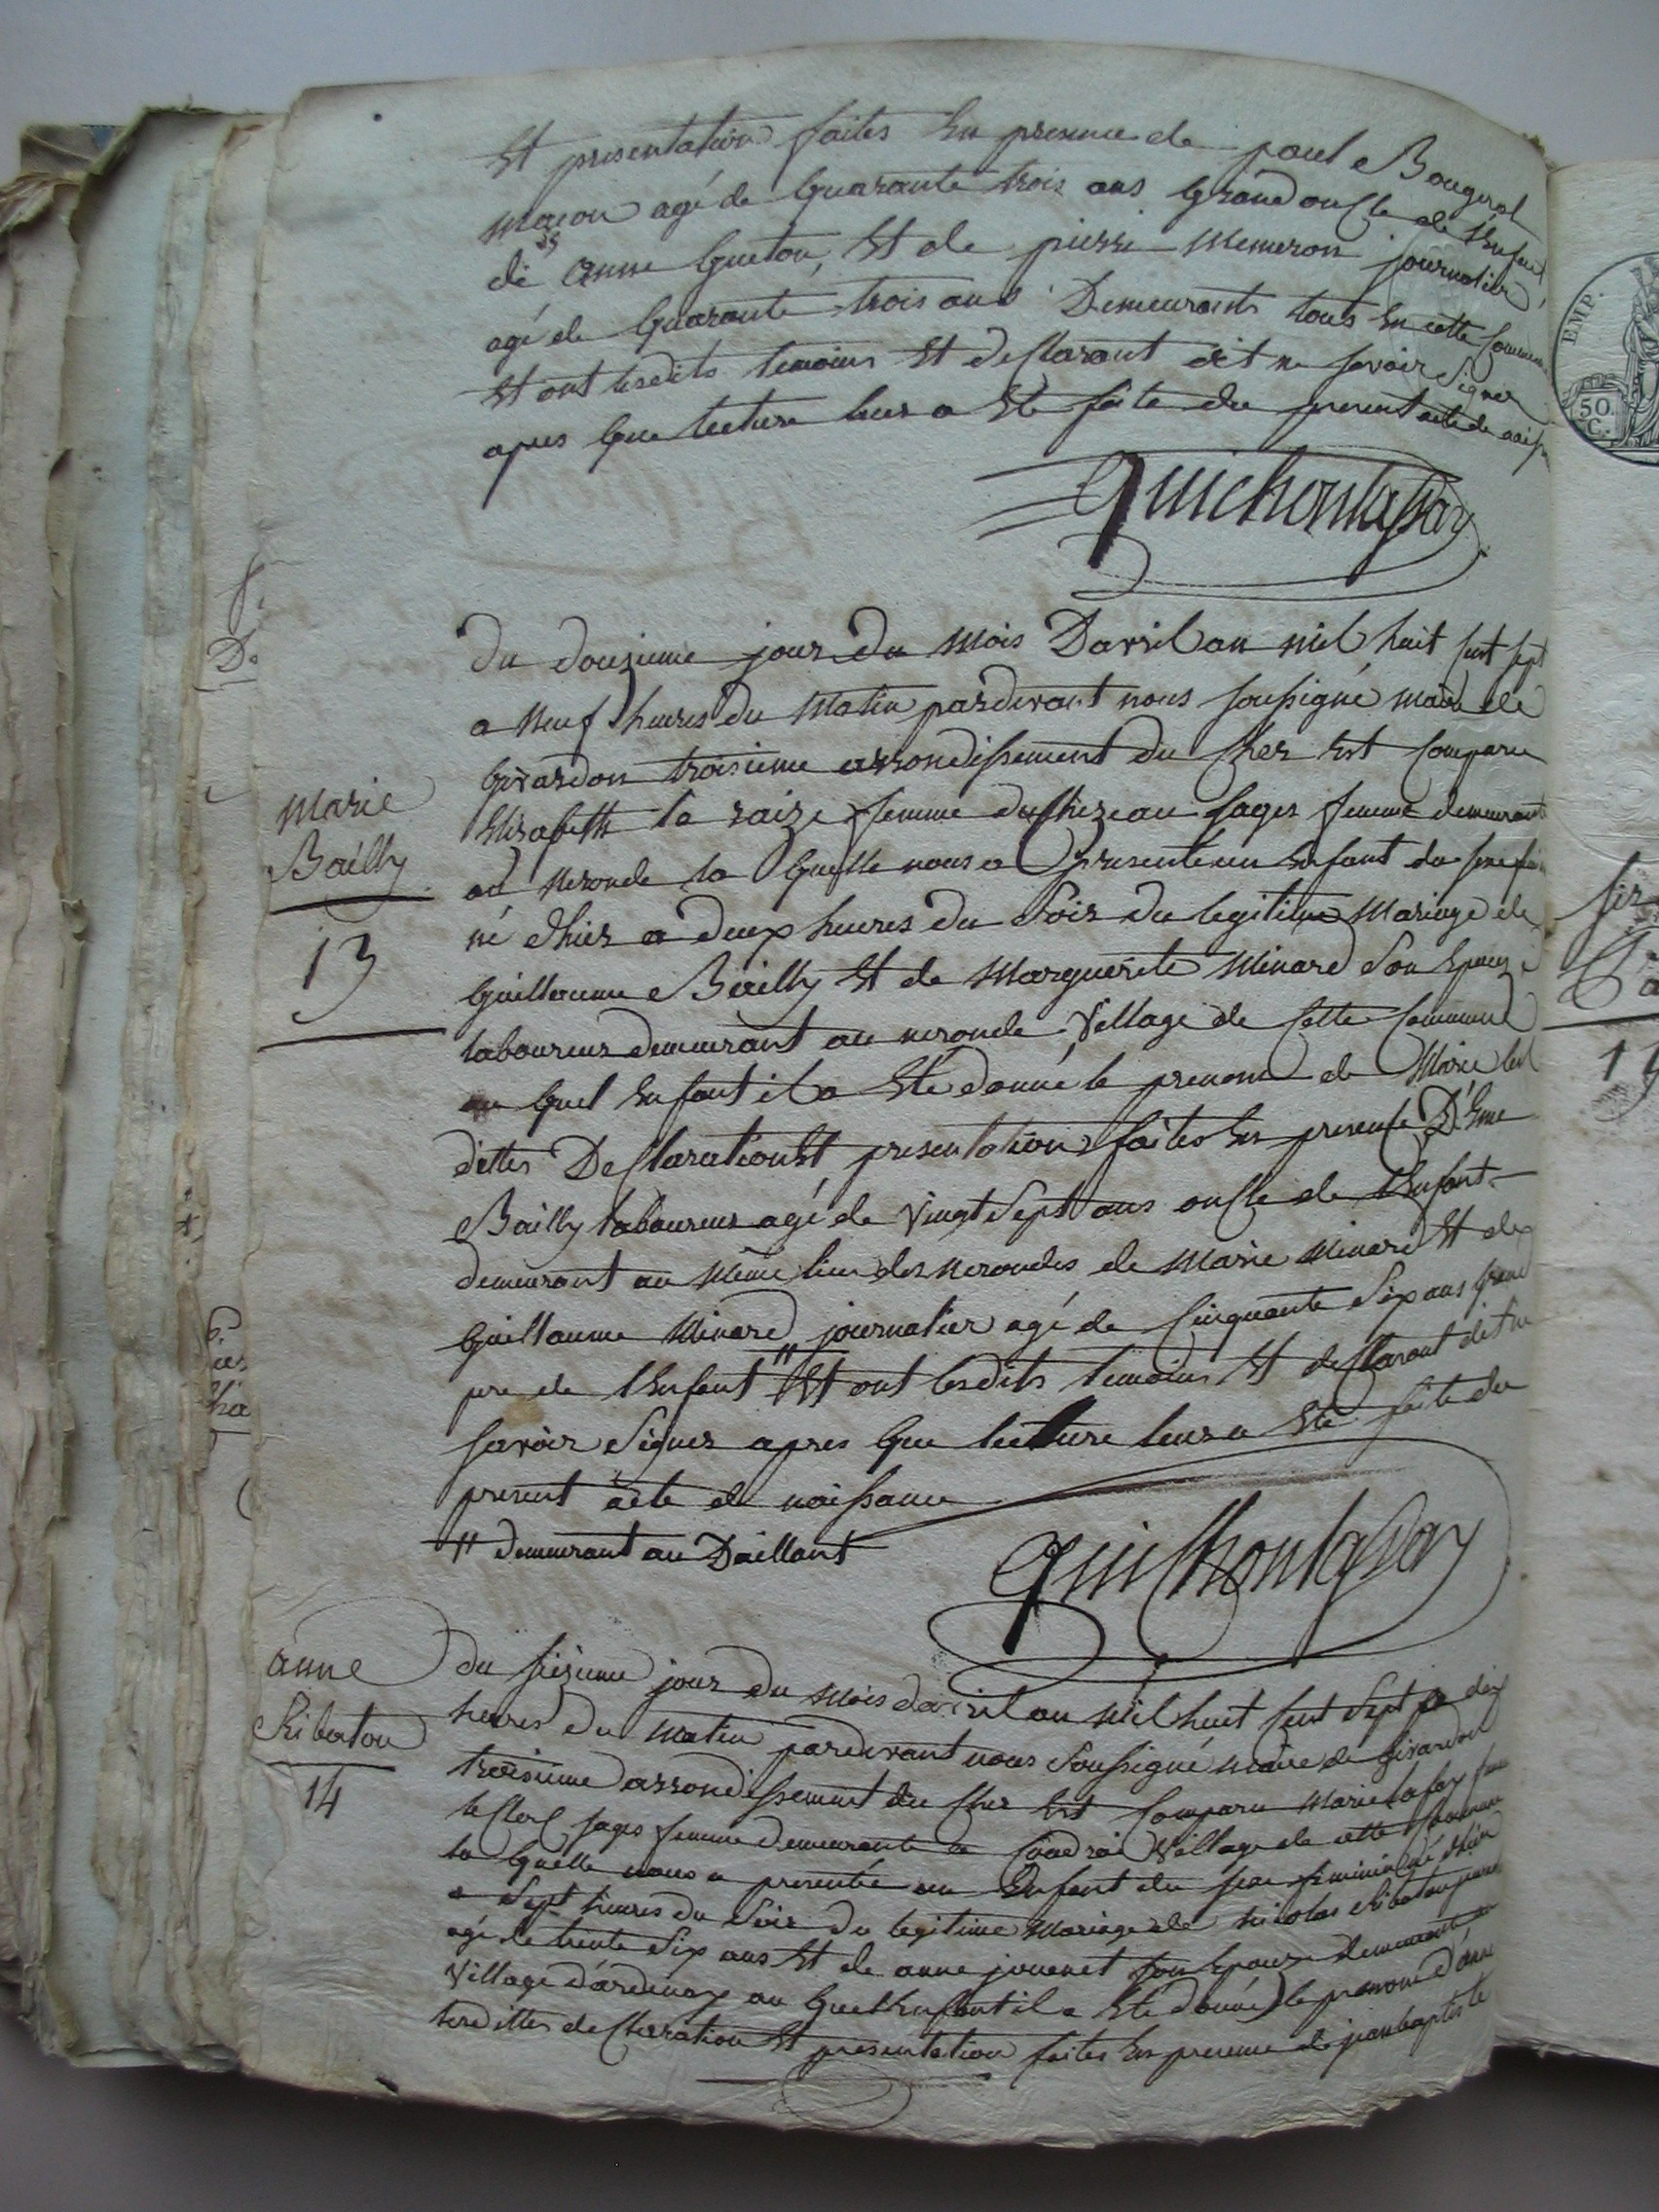 Et presentation faites En presence de paul Bougerol
Macon agé de quarante trois ans grand oncle de l'Enfant
de anne gueton, Et de pierre Memeron journalier
agé de quarante trois ans Demeurants tous En cette Commune
Et ont lesdits temoins Et desclarant dit ne savoir signer
apres que lecture leur a Eté faite du present acte de naiss
Guichontapay
du douzieme jour du Mois Davril an mil huit cent sept
a Neuf heures du Matin pardevant nous soussigné maire de
givardon troisieme arrondissement du Cher Est Comparu
Elizabeth la raize femme duchezeau sages femme demeurante
au Neronde la quelle nous a presente un Enfant du sexe
né d'hier a deux heures du soir du legitime Mariage de
guillaume Bailly Et de Marguerite Minard son Epouze
laboureur demeurant au neronde Village de cette Commune
au quel Enfant il a Eté donné le prenom de Marie les
dittes Desclaration Et presentation faites En presence D'Eme
Bailly laboureur agé de vingt sept ans oncle de l'Enfant
demeurant au Même lieu des Nerondes de Marie Minard Et de
guillaume Minard journalier agé de Cinquante six ans grand
pere de l'Enfant " Et ont lesdits temoins Et desclarant dit ne
savoir signer apres que lecture leur a Eté faite du
present acte de naissance
" demeurant au Daillant
Guichontapay
Marie
Bailly
13
anne
Ribaton
14
du seizieme jour du Mois davril an Mil huit cent sept a dix
heures du Matin pardevant nous soussigné maire de givardon
troisieme arrondissement du Cher Est Comparu Marie lafoy
leclerc sages femme demeurante a Coudrai Village de cette Commune
la quelle nous a presentée un Enfant du sexe feminin né d'hier
a sept heures du soir du legitime Mariage de nicolas Ribaton
agé de trente six ans Et de anne jouenet son Epouze demeurant au
Village d'ardenay au quel Enfant il a Eté donné le prenom d'anne
lesdittes desclaration Et presentation faites En presence de jean baptiste
EMP.
50.
C.